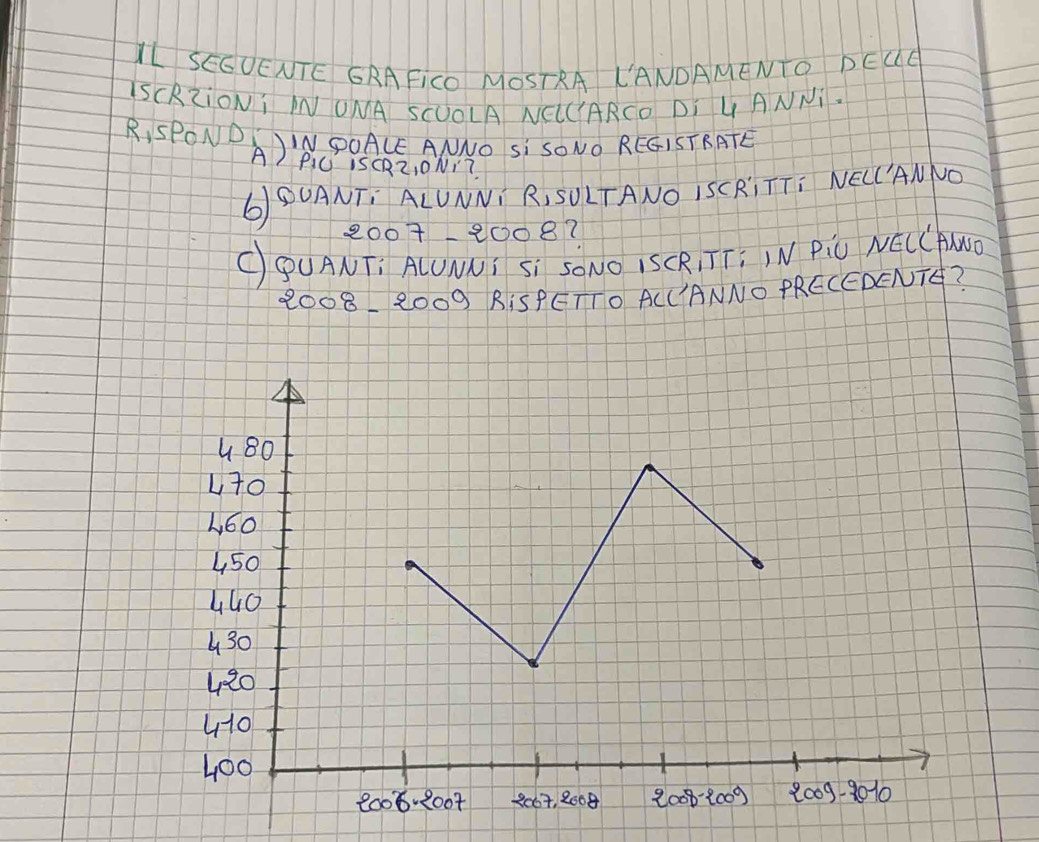 IL SEGUENTE GRAFICO MOSTRA L'ANDAMENTO DELLE
ISCRZIONI IN UNA SCUOLA NELL'ARCO DI 4 ANNI.
RISPONDI
A) IN QUALE ANNO SI SONO REGISTRATE
PIÙ ISCRZIONI?
b) QUANTI ALUNNI RISULTANO ISCRITTI NELL'ANNO
2007-2008?
C) QUANTI ALUNNI SI SONO ISCRITTI IN PIÙ NELL'ANNO
2008-2009 RISPETTO ALL'ANNO PRECEDENTE?
480
470
460
450
440
430
420
410
400
2006-2007 2007-2008 2008-2009 2009-2010